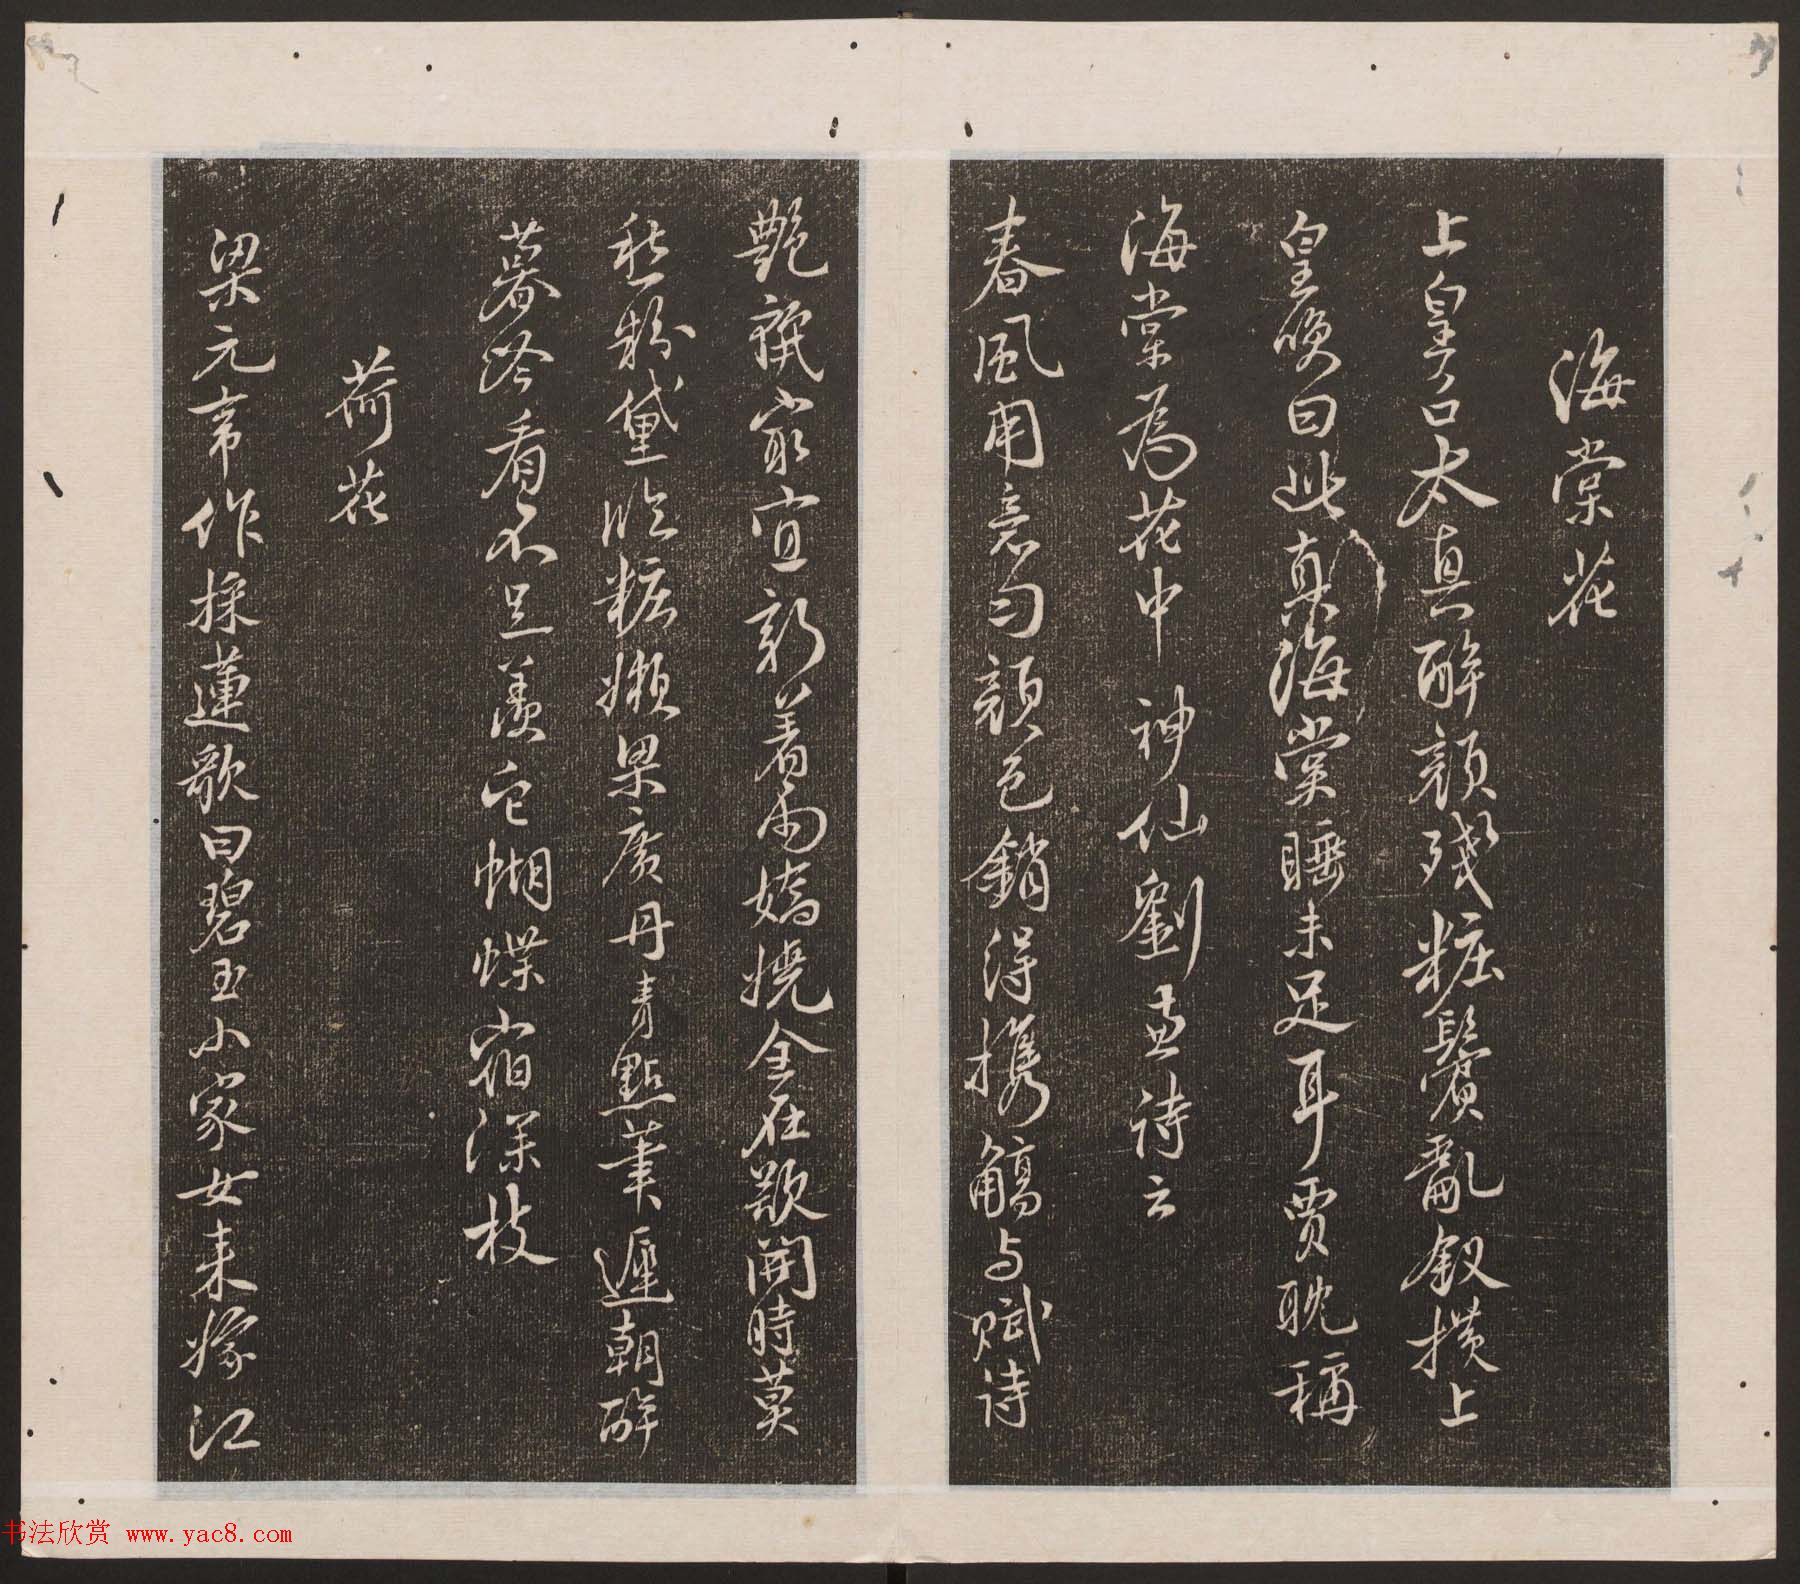 海棠花
上皇召太真醉顔殘粧鬢亂釵横上
皇咲曰此真海棠睡未足耳賈耽稱
海棠為花中神仙劉孟詩云
春風用意勻顔色銷得携觴与賦詩
艶穠冣宜新着雨嬌嬈全在欲開時莫
愁粉黛臨粧嬾梁廣丹青點筆遲朝醉
暮吟看不足羡它蝴蝶宿深枝
荷花
梁元帝作採蓮歌曰碧玉小家女来嫁江
书法欣赏 www.yac8.com